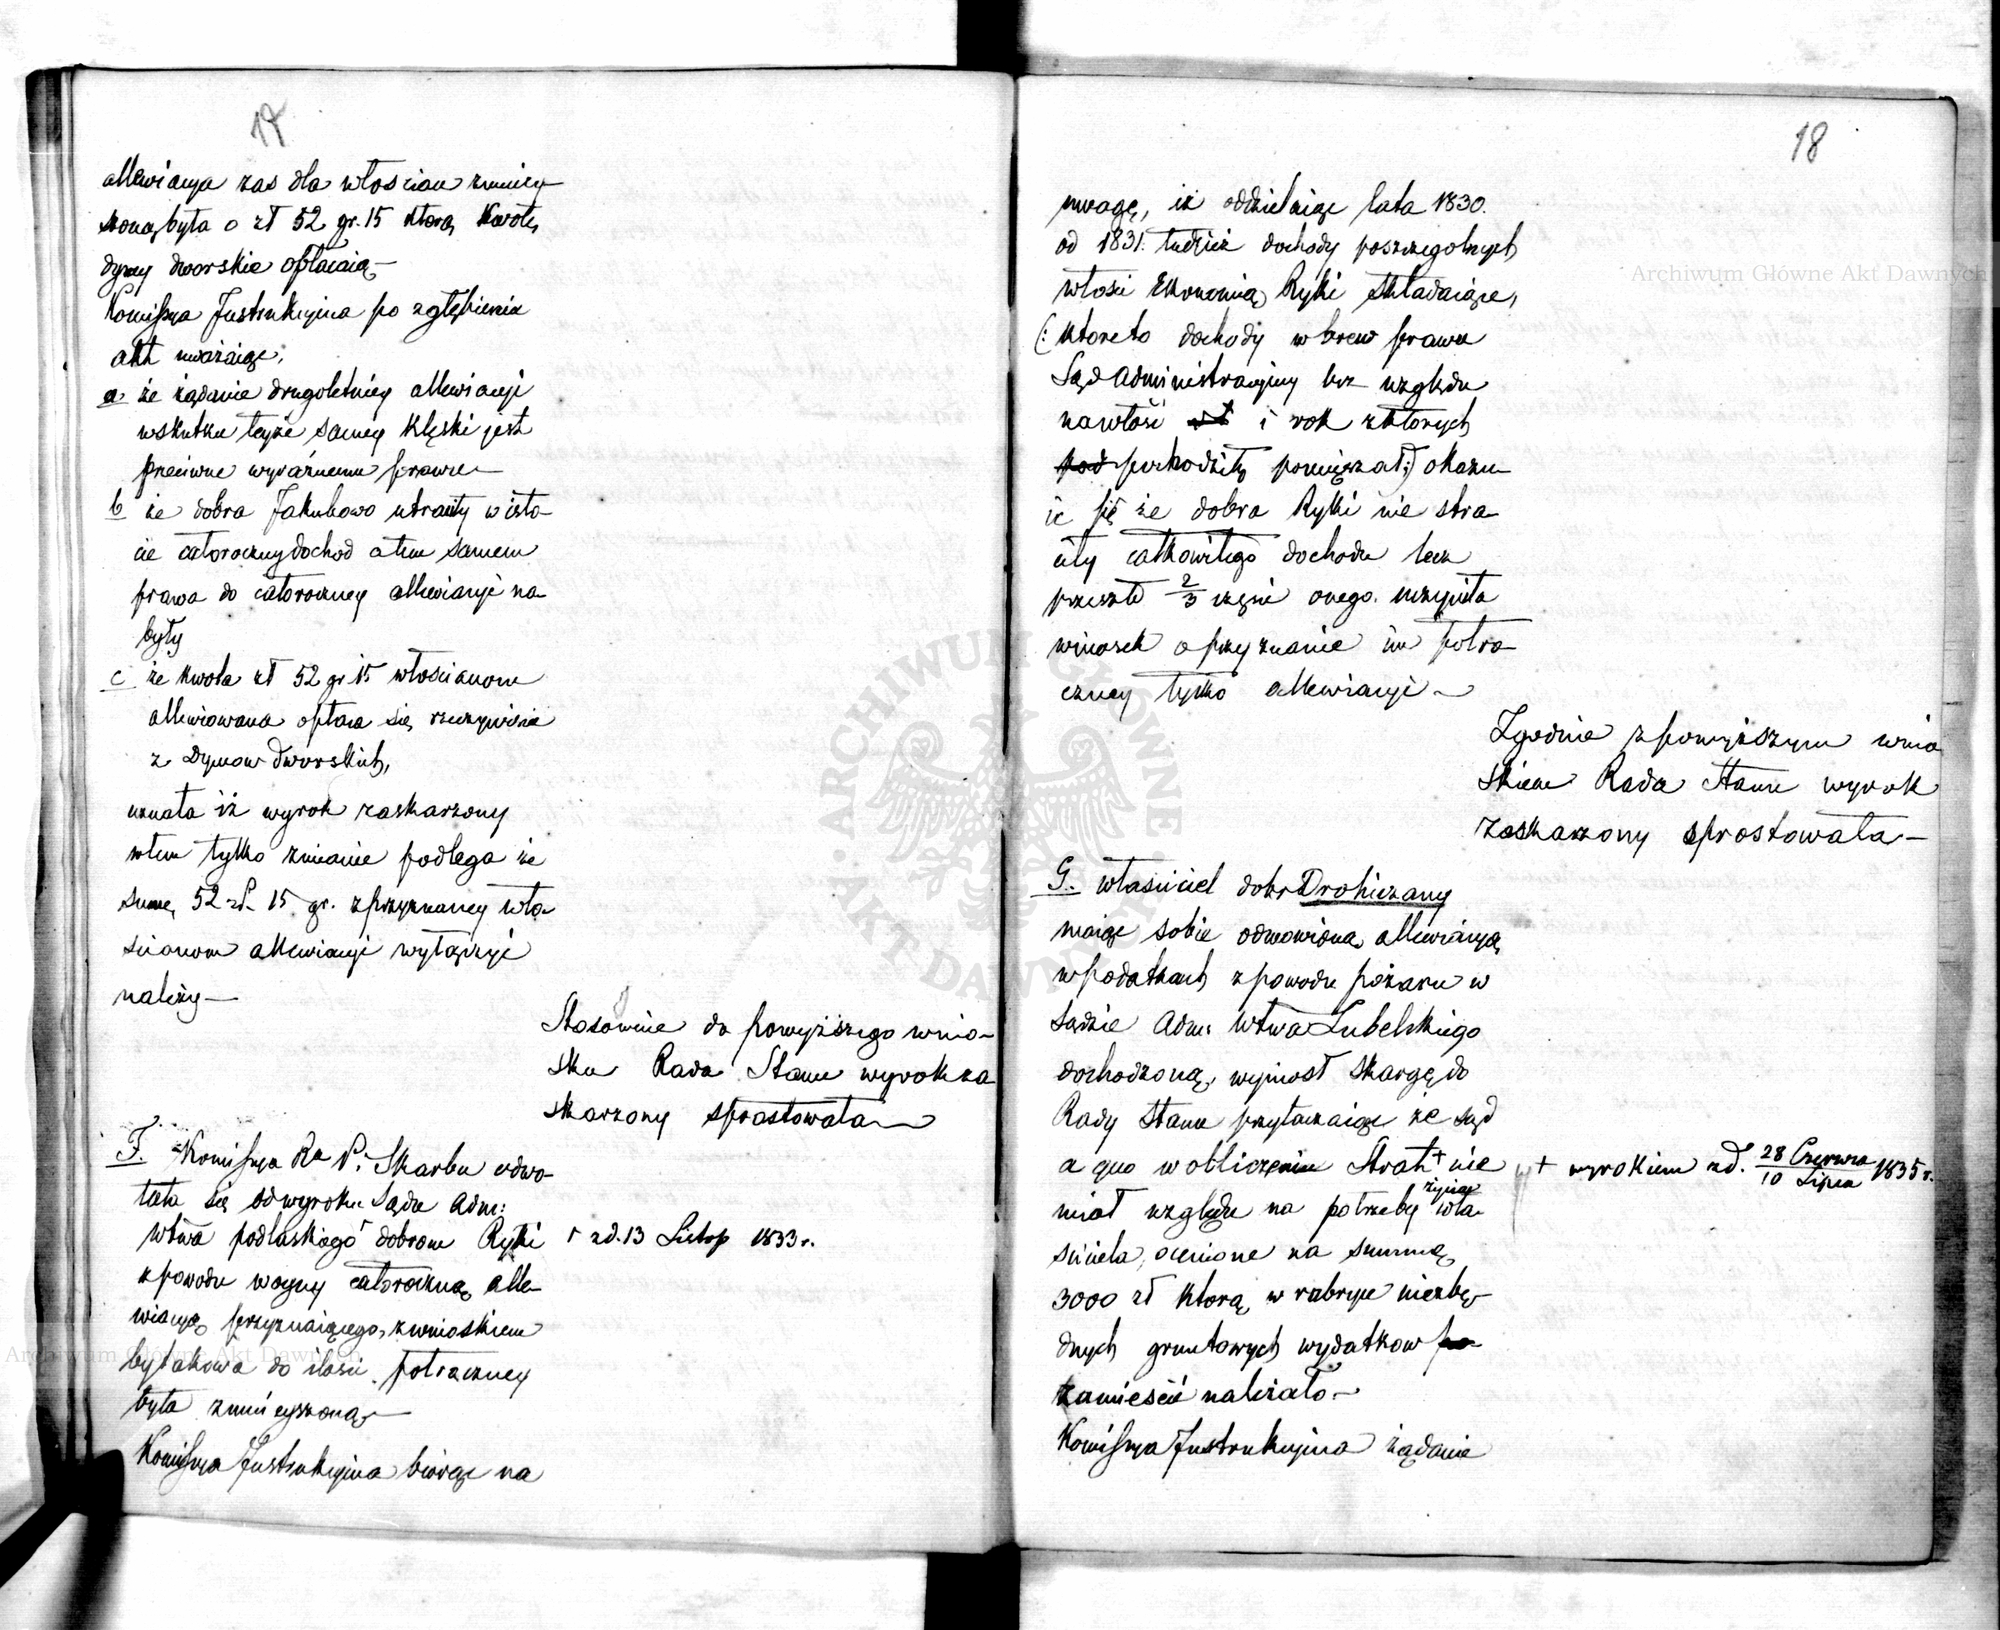 17
allewiacya zas dla włoscian zmniey
szoną była o zł 52 gr. 15 ktorą kwotę
dymy dworskie opłacaią—
Komissya Instrukcyina po zgłębieniu
akt uważaiąc,
a. że żądanie drugoletniey allewiacyi
wskutku teyże samey klęski jest
przeciwne wyraźnemu prawu—
b że dobra Jakubowo utraciły w isto-
cie całoroczny dochod a tem samem
prawa do całoroczney allewiacyi na-
były
c że kwota zł 52 gr 15 włościanom
allewiowana opłaca się rzeczywiscie
z Dymow dworskich,
uznała iż wyrok zaskarzony
wtem tylko zmianie podlega że
summę 52 zł. 15 gr. zprzyznaney wło-
scianom allewiacyi wyłączyć
należy—
Stosownie do powyższego wnio-
sku Rada Stanu wyrok za
skarzony sprostowała—
F. Komissya R. P. i Skarbu odwo-
łała się od wyroku Sądu Adm:
wtwa podlaskiego ┌ dobrom Ryki
┌ z d. 13 Listop 1833 r.
z powodu woyny całoroczną alle-
wiacyą przyznaiącego, z wnioskiem
by takowa do ilosci połroczney
była zmnieyszoną—
Komissya Instrukcyina biorąc na
18
uwagę, iż oddzielaiąc lata 1830.
od 1831. tudzież dochody poszczegolnych
włosci Ekonomią Ryki składaiące,
(: ktoreto dochody wbrew prawu
Sąd Administracyiny bez względu
na włość i rok zktorych
pod pochodziły pomięszał:) okazu
ie się że dobra Ryki nie stra
ciły całkowitego dochodu lecz
przeszło 2/3 częsci onego. uczyniła
wniosek o przyznanie im połro-
czney tylko allewiacyi—
Zgodnie z powyższym wnio
skiem Rada Stanu wyrok
zaskarzony sprostowała—
G. właściciel dobr Drohiczany
maiąc sobie odmowioną allewiacyą
w podatkach z powodu pożaru w
Sądzie Adm: wtwa Lubelskiego
dochodzoną, wyniosł skargę do
Rady Stanu przytaczaiąc że Sąd
a quo w obliczeniu Strat + nie
+ wyrokiem z d. 28 Czerwca / 10 Lipca 1835 r.
miał względu na potrzeby życia wła-
sciciela, ocenione na summę
3000 zł ktorą w rubryce niezbę-
dnych gruntowych wydatkow po
zamieścić należało—
Komissya Instrukcyina żądanie
Archiwum Główne Akt Dawnych
Archiwum Główne Akt Dawnych
ARCHIWUM GŁÓWNE AKT DAWNYCH